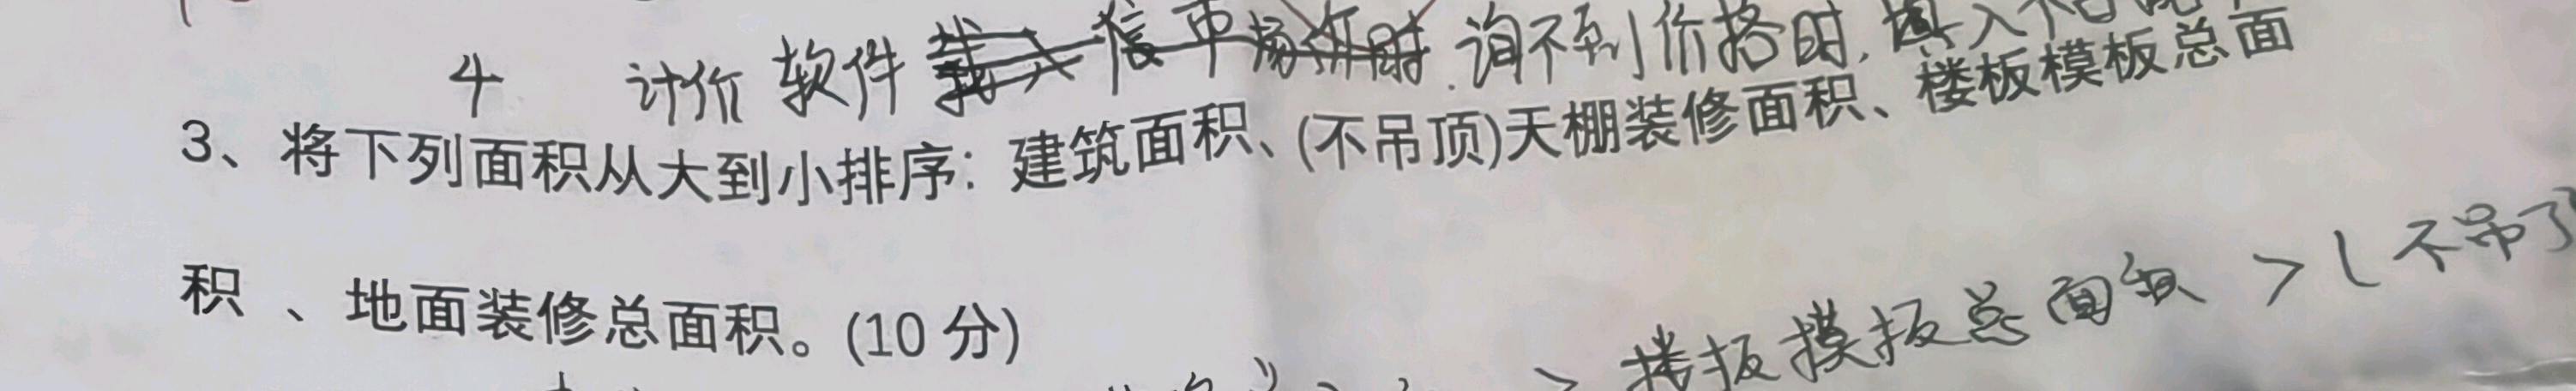 4 计价软件 询不到价格时,填入
3、将下列面积从大到小排序: 建筑面积、(不吊顶)天棚装修面积、楼板模板总面
积 、地面装修总面积。(10 分)
> 楼板摸板总面积 > (不吊